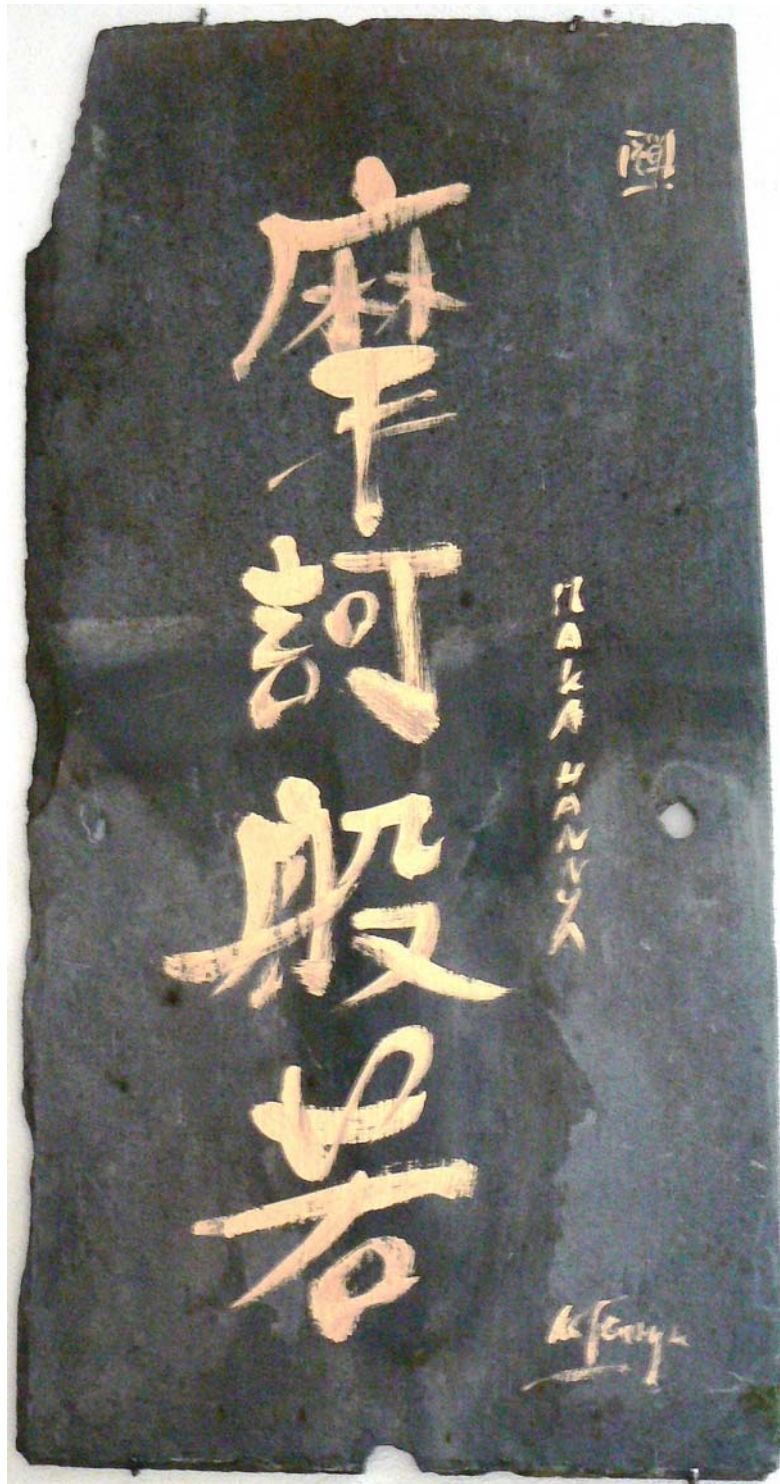 摩訶般若
MAKA HANNYA